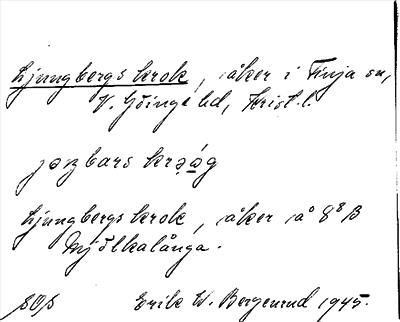 Ljungbergs krok, åker i Finja sn,
V. Göinge hd, Krist. l.
jɵŋbars krǫ́g
Ljungbergs krok, åker å 8⁸ B
Mjölkalånga.
Erik W. Bergenrud 1945.